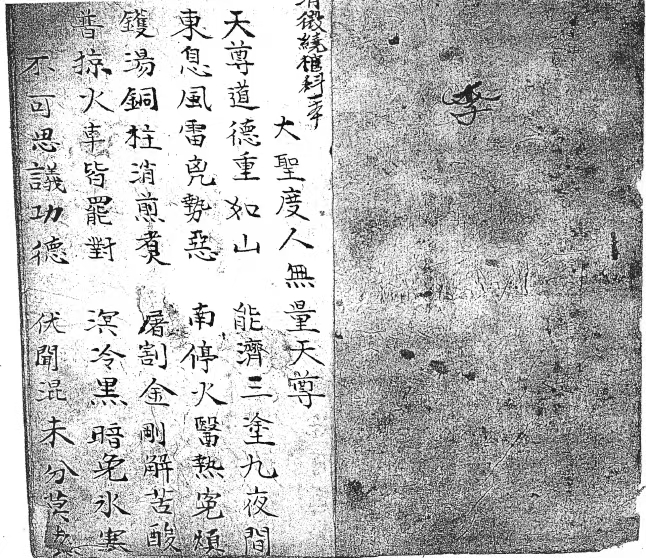 李
清微繞棺科一本
大聖度人無量天尊
天尊道德重如山 能濟三塗九夜間
東息風雷兇勢惡 南停火醫熱寃煩
鑊湯銅柱消煎煮 屠割金剛解苦酸
普掠火車皆罷對 溟冷黑暗免氷寒
不可思議功德 伏聞混未分莫